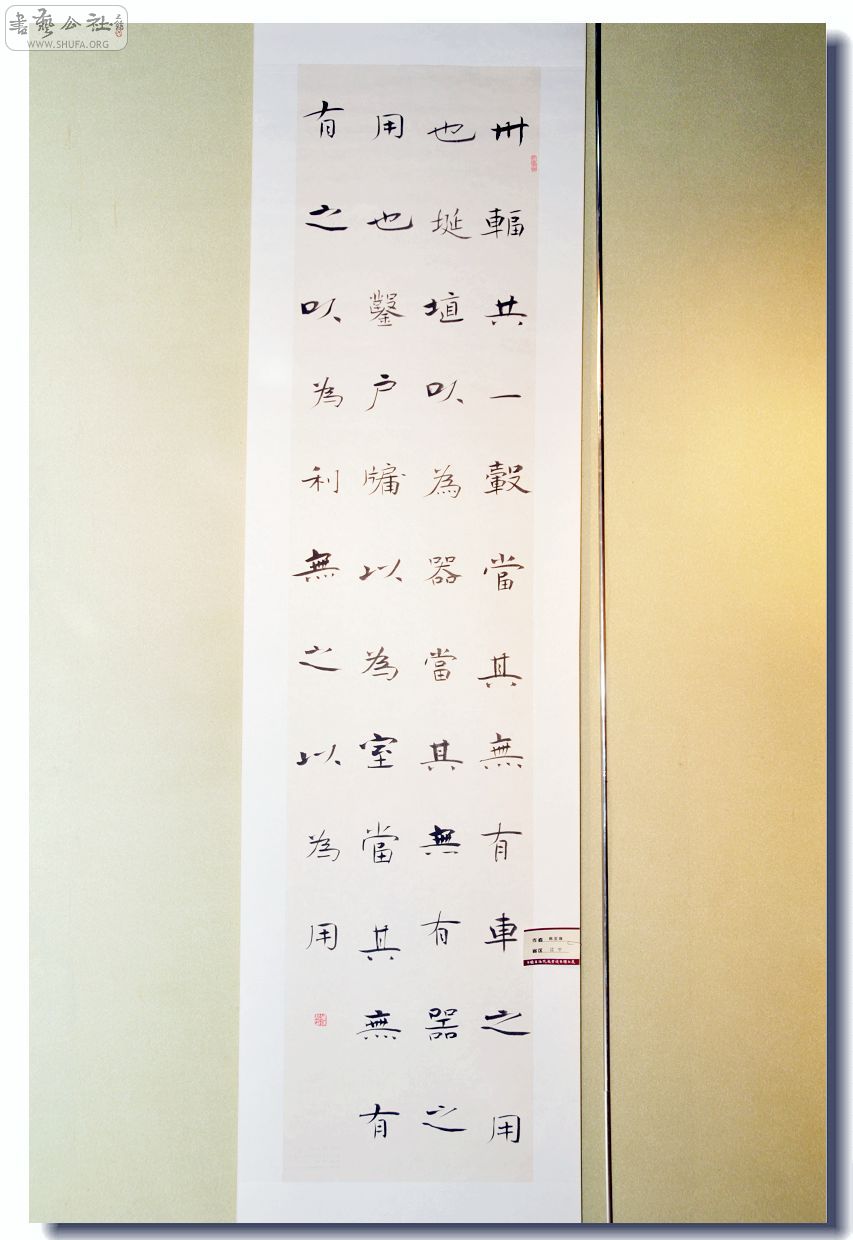 卅輻共一轂當其無有車之用
也埏埴以為器當其無有器之
用也鑿戶牖以為室當其無有
有之以為利無之以為用
書藝公社
WWW.SHUFA.ORG